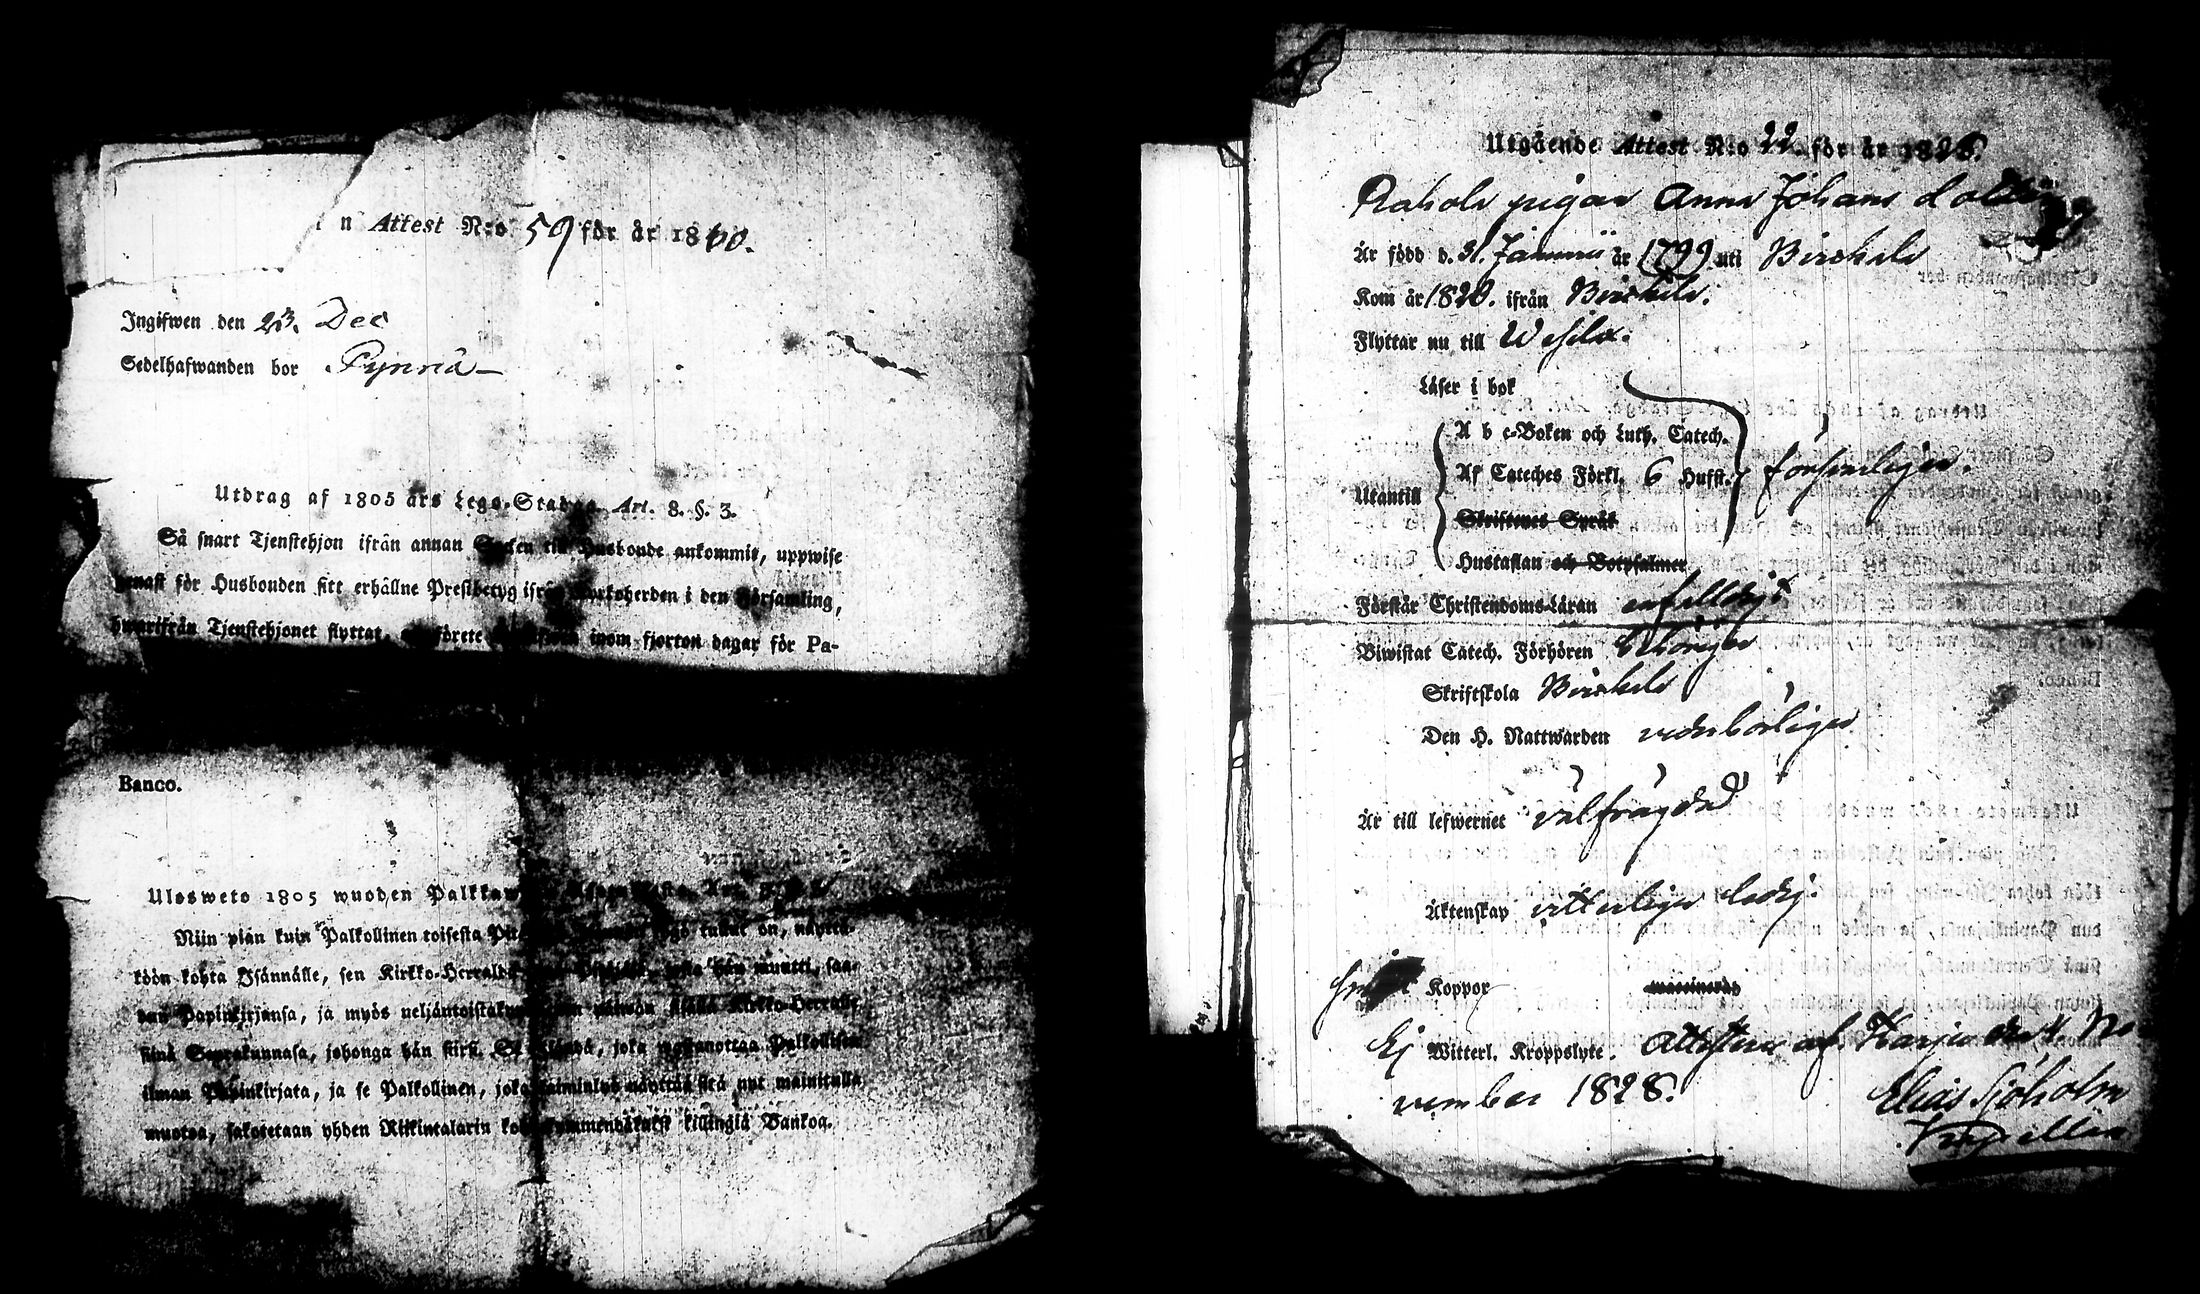 n Attest N:o 59 för år 18
Ingifwen den 23. Dec
Sedelhafwanden bor Pynnä
Utdrag af 1805 års Lego-Stadga Art. 8. §. 3.
Så snart Tjenstehjon ifrån annan Socken till Husbonde ankommit, uppwise
genast för Husbonden sitt erhållne Prestbetyg ifrån Kyrkoherden i den Församling,
hwarifrån Tjenstehjonet flyttat, förete inom fjorton dagar för Pa-
Banco.
Ulosweto 1805 wuoden Palkka
Niin pian kuin Palkollinen toisesta tullut on, näyttä-
köön kohta Isännälle, sen Kirkko-Herralda josta hän muutti, saa-
dun Papinkirjansa, ja myös neljäntoistakym Kirkko-Herralle
siinä Seurakunnasa, johonga hän siirsi. joka wastaanottaa Palkollisen
ilman Papinkirjata, ja se Palkollinen, joka laiminlyö näyttää sitä nyt mainitulla
muotoa, sakotetaan yhden Riikintalarin kol killingiä Bankoa.
Utgående Attest N:o 22 för år 1828.
pigan Anna Johans dotter
Är född d. 31. Januarii år 1799 uti Birckala
Kom år 1820. ifrån Birckala.
Flyttar nu till Wesilax.
Läser i bok
Utantill
A b c-Boken och Luth. Catech.
Af Cateches Förkl. 6 Hufst. försvarligen.
Skriftenes Språk
Hustaflan och Botpsalmer
Förstår Christendoms-Läran enfaldigt
Biwistat Catech. Förhören behörigen
Skriftskola Birckala
Den H. Nattwarden vederbörligen
Är till lefwernet välfrägdad
Äktenskap vitterligen ledig.
Koppor
Ej Witterl. Kroppslyte. Attesteras af Karju den 4. No-
vember 1828.
Elias Sjöholm
Kapellan